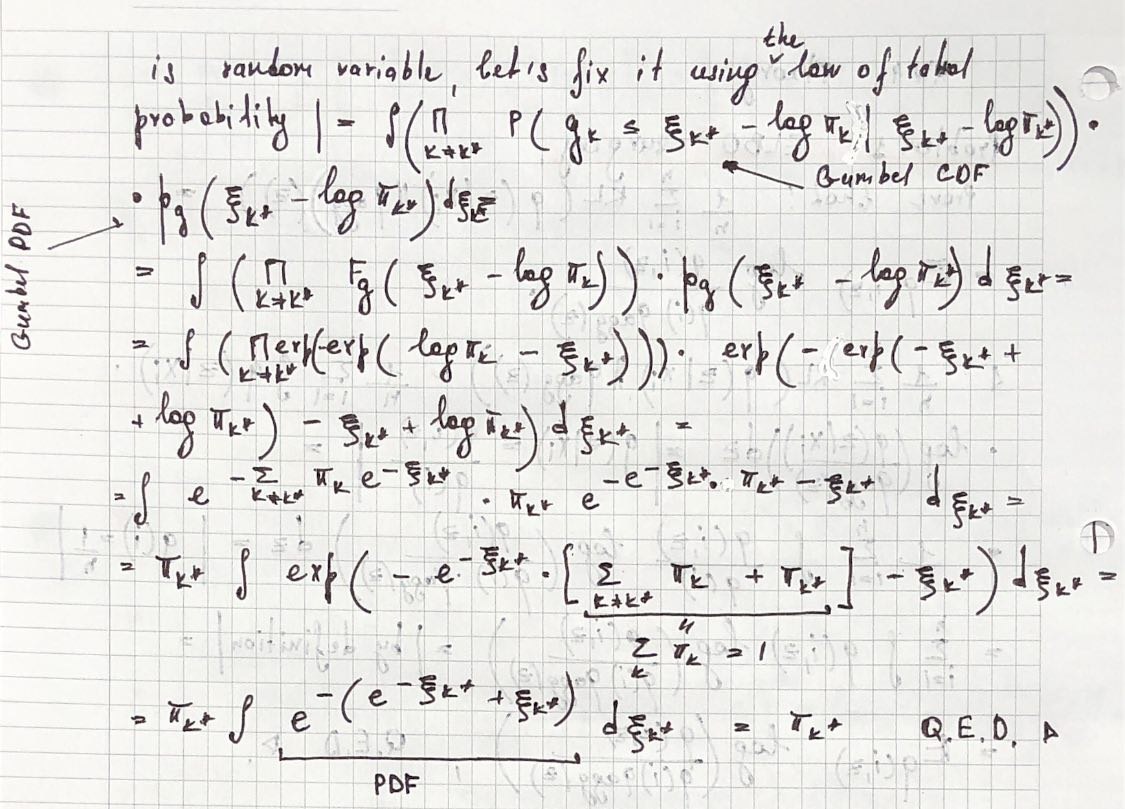 is random variable, let's fix it using the law of total
probability | = ∫ ( ∏_{k≠k*} P( g_k ≤ ξ_{k*} - log π_k | ξ_{k*} - log π_{k*} ) ) ·
Gumbel CDF
· p_g ( ξ_{k*} - log π_{k*} ) dξ_{k*}
Gumbel PDF
= ∫ ( ∏_{k≠k*} F_g ( ξ_{k*} - log π_k ) ) · p_g ( ξ_{k*} - log π_{k*} ) d ξ_{k*} =
= ∫ ( ∏_{k≠k*} exp(-exp( log π_k - ξ_{k*} ) ) ) · exp( - exp( - ξ_{k*} +
+ log π_{k*} ) - ξ_{k*} + log π_{k*} ) d ξ_{k*} =
= ∫ e^{-∑_{k≠k*} π_k e^{-ξ_{k*}}} · π_{k*} e^{-e^{-ξ_{k*}} · π_{k*} - ξ_{k*}} d ξ_{k*} =
= π_{k*} ∫ exp( - e^{-ξ_{k*}} · [ ∑_{k≠k*} π_k + π_{k*} ] - ξ_{k*} ) d ξ_{k*} =
∑_k π_k = 1
= π_{k*} ∫ e^{-( e^{-ξ_{k*}} + ξ_{k*} )} d ξ_{k*} = π_{k*} Q.E.D. ▷
PDF